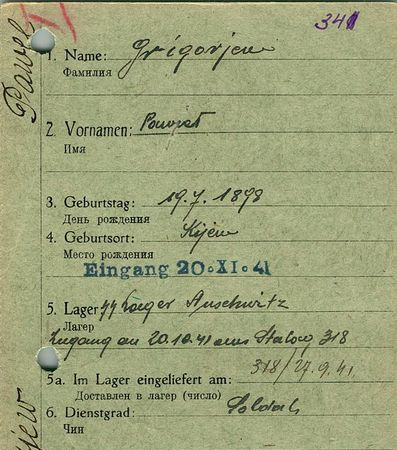 341
Pawel
1. Name: Grigorjew
Фамилия
2. Vornamen:
Имя
3. Geburtstag: 19.7.1898
День рождения
4. Geburtsort: Kijew
Место рождения
Eingang 20.XI.41
5. Lager Lager Auschwitz
Лагерь
Zugang am 20.10.41 aus Stalag 318
318/27.9.41
5a. Im Lager eingeliefert am:
Доставлен в лагерь (число)
6. Dienstgrad: Soldat
Чин
jew